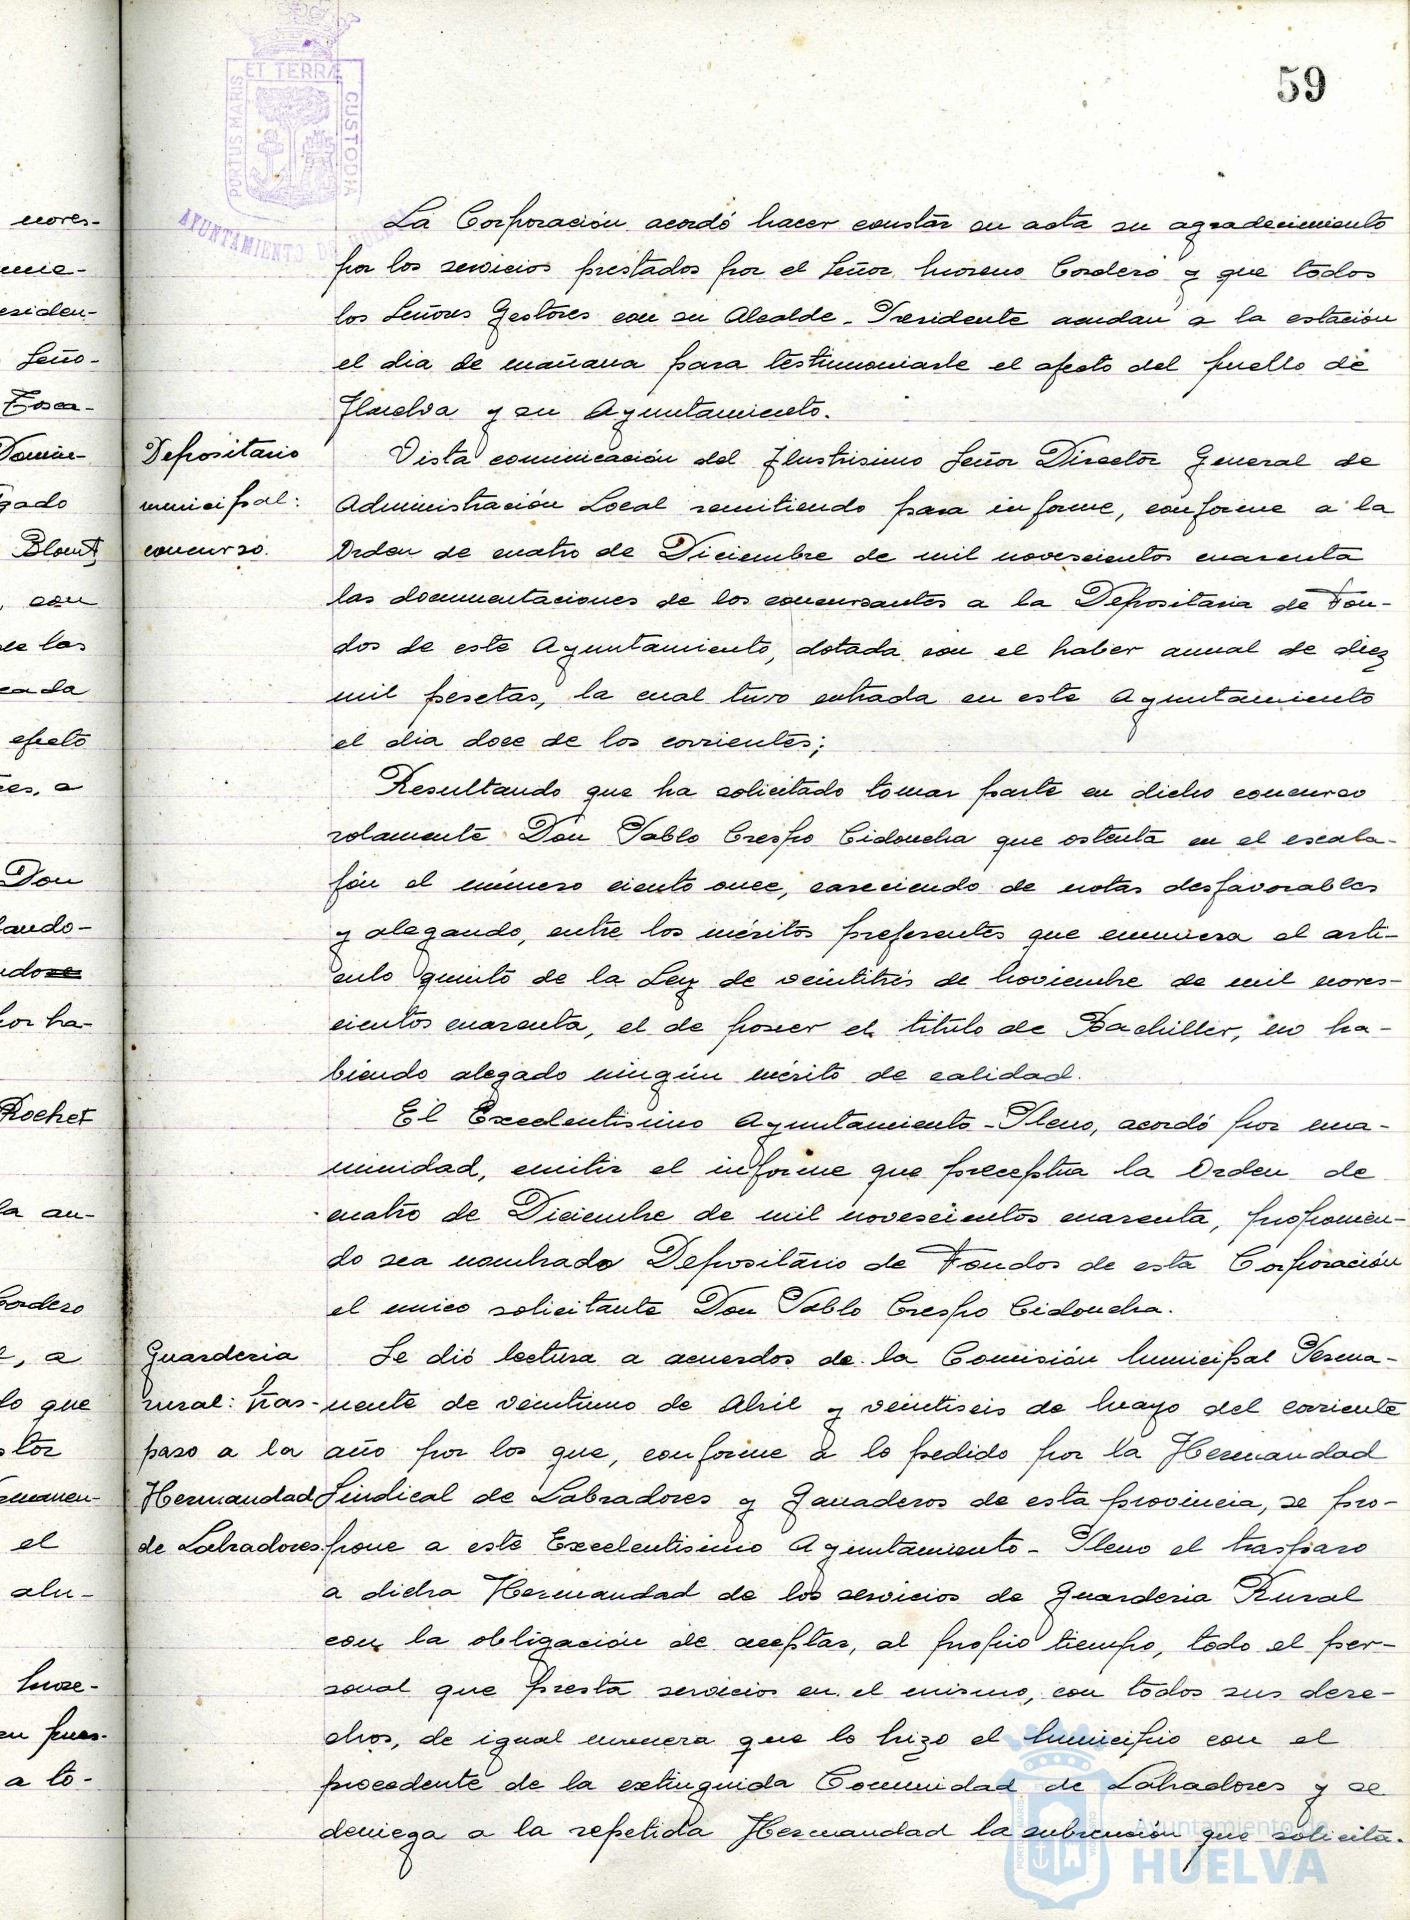 59
ET TERRÆ
PORTUS MARIS
CUSTODIA
AYUNTAMIENTO DE HUELVA
noves-
Seño-
Tosca-
gado
Blount,
, con
de las
cada
efecto
es, a
Don
por ha-
Rochet
la au-
Cordero
, a
lo que
el
alu-
a to-
La Corporación acordó hacer constar en acta su agradecimiento
por los servicios prestados por el Señor Moreno Cordero y que todos
los Señores Gestores con su Alcalde-Presidente acudan a la estación
el dia de mañana para testimoniarle el afecto del pueblo de
Huelva y su Ayuntamiento.
Depositario
municipal:
concurso.
Vista comunicación del Ilustrisimo Señor Director General de
Administración Local remitiendo para informe, conforme a la
Orden de cuatro de Diciembre de mil novescientos cuarenta
las documentaciones de los concursantes a la Depositaria de Fon-
dos de este Ayuntamiento, dotada con el haber anual de diez
mil pesetas, la cual tuvo entrada en este Ayuntamiento
el dia doce de los corrientes;
Resultando que ha solicitado tomar parte en dicho concurso
solamente Don Pablo Crespo Cidoncha que ostenta en el escala-
fón el número ciento once, careciendo de notas desfavorables
y alegando, entre los méritos preferentes que enumera el arti-
culo quinto de la Ley de veintitrés de Noviembre de mil noves-
cientos cuarenta, el de poseer el titulo de Bachiller, no ha-
biendo alegado ningún mérito de calidad.
El Excelentisimo Ayuntamiento-Pleno, acordó por una-
nimidad, emitir el informe que preceptua la Orden de
cuatro de Diciembre de mil novescientos cuarenta, proponien-
do sea nombrado Depositario de Fondos de esta Corporación
el unico solicitante Don Pablo Crespo Cidoncha.
Guarderia
rural: tras-
paso a la
Hermandad
de Labradores.
Se dió lectura a acuerdos de la Comisión Municipal Perma-
nente de veintiuno de Abril y veintiseis de Mayo del corriente
año por los que, conforme a lo pedido por la Hermandad
Sindical de Labradores y Ganaderos de esta provincia, se pro-
pone a este Excelentisimo Ayuntamiento-Pleno el traspaso
a dicha Hermandad de los servicios de Guarderia Rural
con la obligación de aceptar, al propio tiempo, todo el per-
sonal que presta servicios en el mismo, con todos sus dere-
chos, de igual manera que lo hizo el Municipio con el
procedente de la extinguida Comunidad de Labradores y se
deniega a la repetida Hermandad la subvención que solicita.
Ayuntamiento de
HUELVA